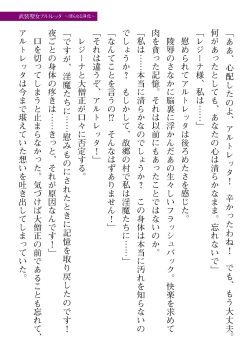 武装聖女アルトレッタ
「ああ、心配したのよ、アルトレッタ! 辛かったわね! でも、もう大丈夫。
何があったとしても、あなたの心は清らかなまま。忘れないで」
「レジーナ様、私は……」
慰められてアルトレッタは後ろめたさを感じた。
陵辱のさなかに脳裏に浮かんだあの生々しいフラッシュバック。快楽を求めて
肉を貪った記憶。それは以前にもあったことではないのか。
「私は……本当に清らかなのでしょうか? この身体は本当に汚れを知らないの
でしょうか? もしかして、故郷の村で私は淫魔たちに……」
「なんてことを言うの!? そんなはずありません!」
「それは違うぞ、アルトレッタ!」
レジーナと大僧正が口々に否定する。
「ですが、淫魔たちに……慰みものにされたときに記憶を取り戻したのです!
夜ごとの身体の疼きは……きっと、それが原因なんです!」
口を切ってしまうと止まらなかった。気づけば大僧正の前であることも忘れて、
アルトレッタは今まで堪えていた想いを吐き出してしまっていた。